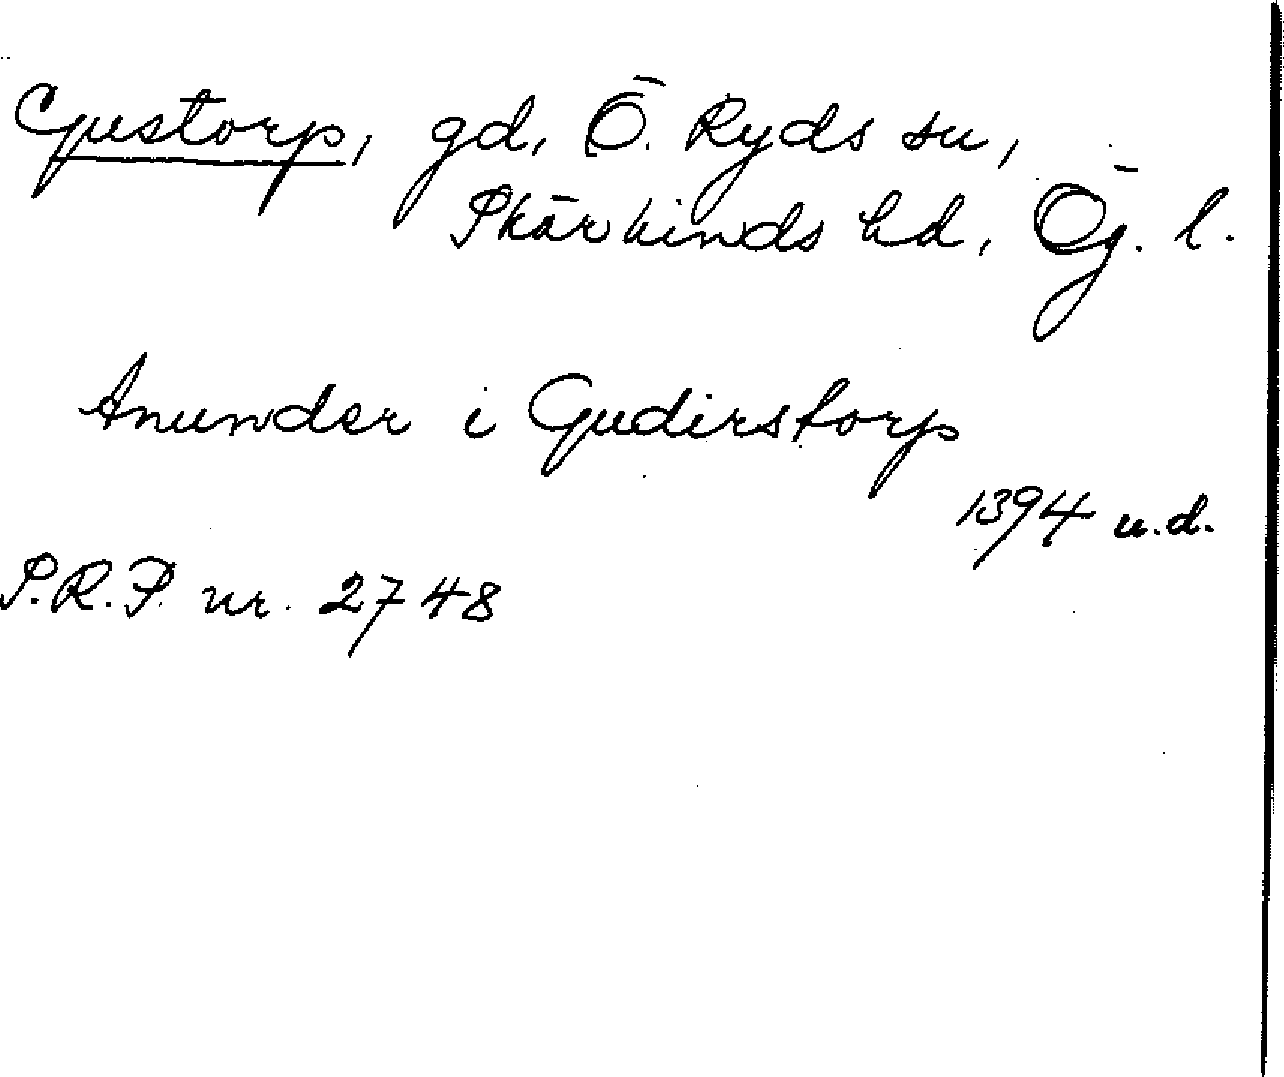 Gustorp, gd, Ö. Ryds sn,
Skärkinds hd, Ög. l.
Anunder i Gudirstorp
1394 u.d.
S.R.P. nr. 2748